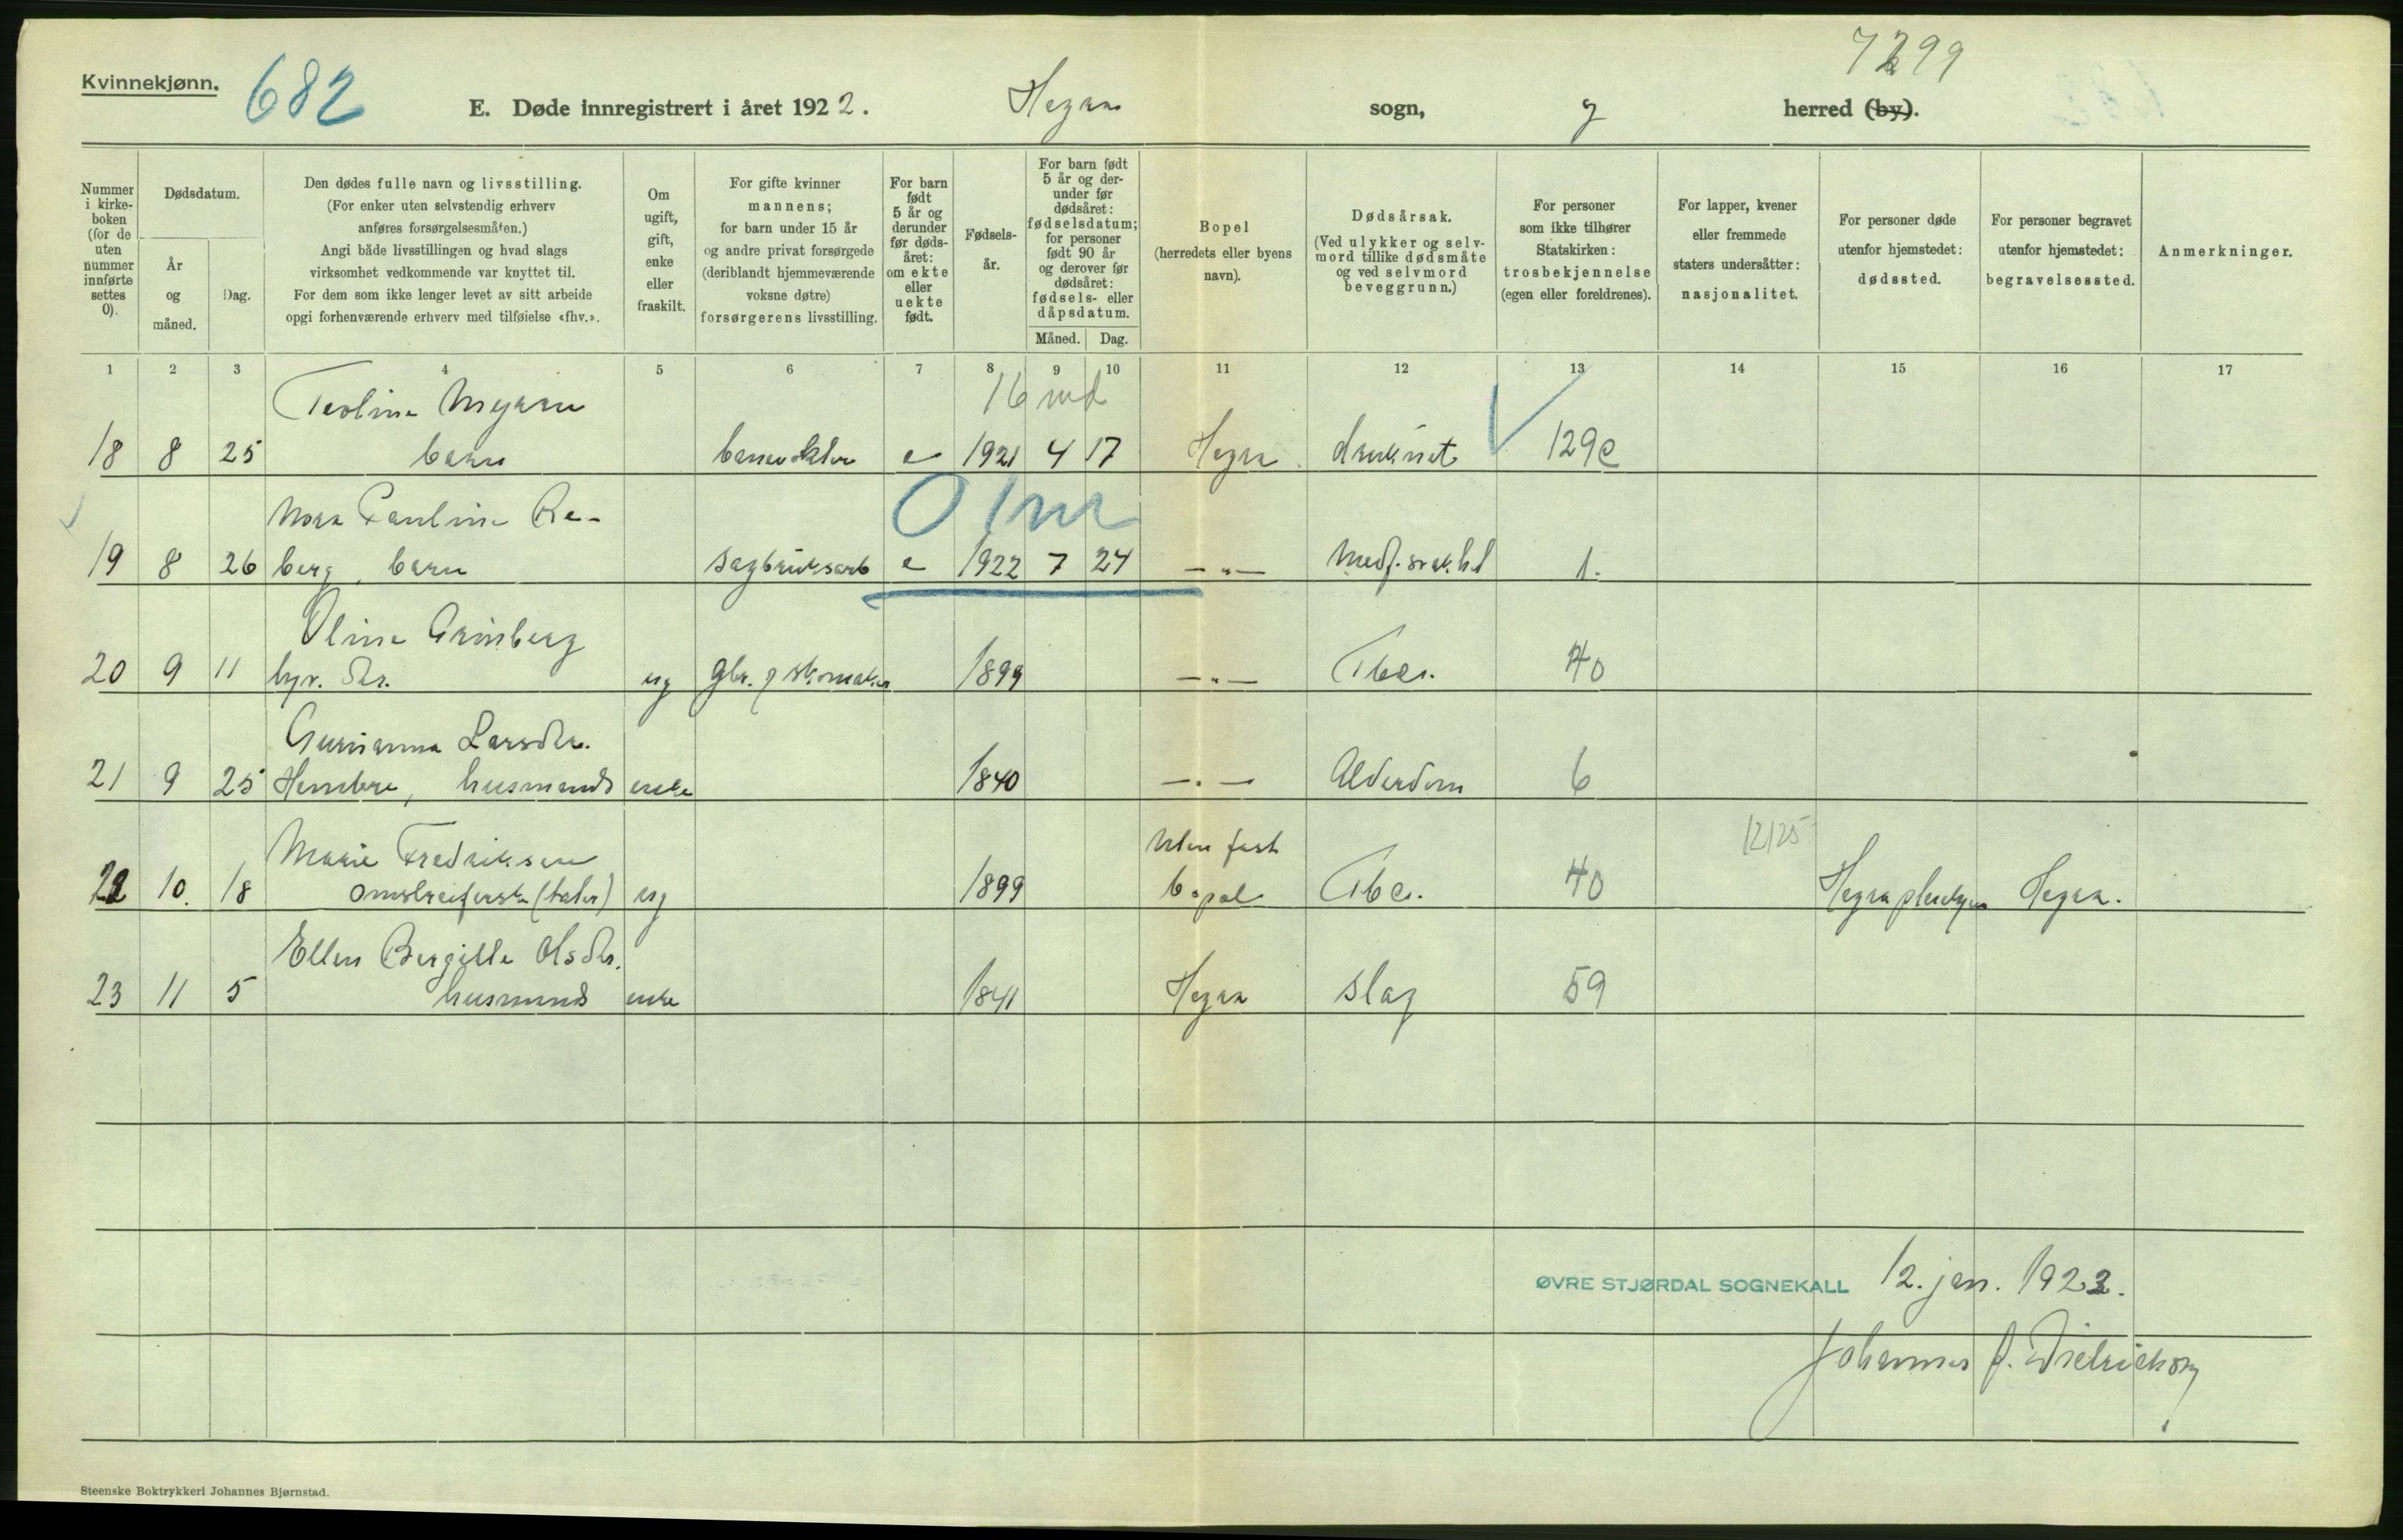 7299
Kvinnekjønn.
682
E. Døde innregistrert i året 1922. Hegra sogn, og herred (by).
Nummer i kirkeboken (for de uten nummer innførte settes 0).
Dødsdatum.
År og måned.
Dag.
Den dødes fulle navn og livsstilling.
(For enker uten selvstendig erhverv
anføres forsørgelsesmåten.)
Angi både livsstillingen og hvad slags
virksomhet vedkommende var knyttet til.
For dem som ikke lenger levet av sitt arbeide
opgi forhenværende erhverv med tilføielse «fhv.».
Om ugift, gift, enke eller fraskilt.
For gifte kvinner
mannens;
for barn under 15 år
og andre privat forsørgede
(deriblandt hjemmeværende
voksne døtre)
forsørgerens livsstilling.
For barn født 5 år og derunder før dødsåret: om ekte eller uekte født.
Fødselsår.
For barn født 5 år og derunder før dødsåret: fødselsdatum; for personer født 90 år og derover før dødsåret: fødsels- eller dåpsdatum.
Måned. Dag.
Bopel
(herredets eller byens
navn).
Dødsårsak.
(Ved ulykker og selvmord tillike dødsmåte
og ved selvmord
beveggrunn.)
For personer
som ikke tilhører
Statskirken:
trosbekjennelse
(egen eller foreldrenes).
For lapper, kvener
eller fremmede
staters undersåtter:
nasjonalitet.
For personer døde
utenfor hjemstedet:
dødssted.
For personer begravet
utenfor hjemstedet:
begravelsessted.
Anmerkninger.
1 2 3 4 5 6 7 8 9 10 11 12 13 14 15 16 17
16 md
18 8 25 barn e 1921 4 17 Hegra druknet 129c
Nora Paulina Re-
0 1 m
19 8 26 berg, barn sagbruksarb e 1922 7 24 — " — Medf. svakh. 1.
Olina Grinsberg
20 9 11 ug gbr. og skomaker 1899 — " — Tbc. 40
Gurianna Larsdtr.
21 9 25 husmands enke 1840 — " — Alderdom 6
Marie Fredriksen Uten fast 12125
22 10. 18 omstreiferske (tater) ug 1899 bopel Tbc. 40 Hegra Hegra.
Ellen Bergitte Olsdtr.
23 11 5 husmands enke 1841 Hegra slag 59
ØVRE STJØRDAL SOGNEKALL 12. jan. 1923.
Johannes J. Dietrichson
Steenske Boktrykkeri Johannes Bjørnstad.